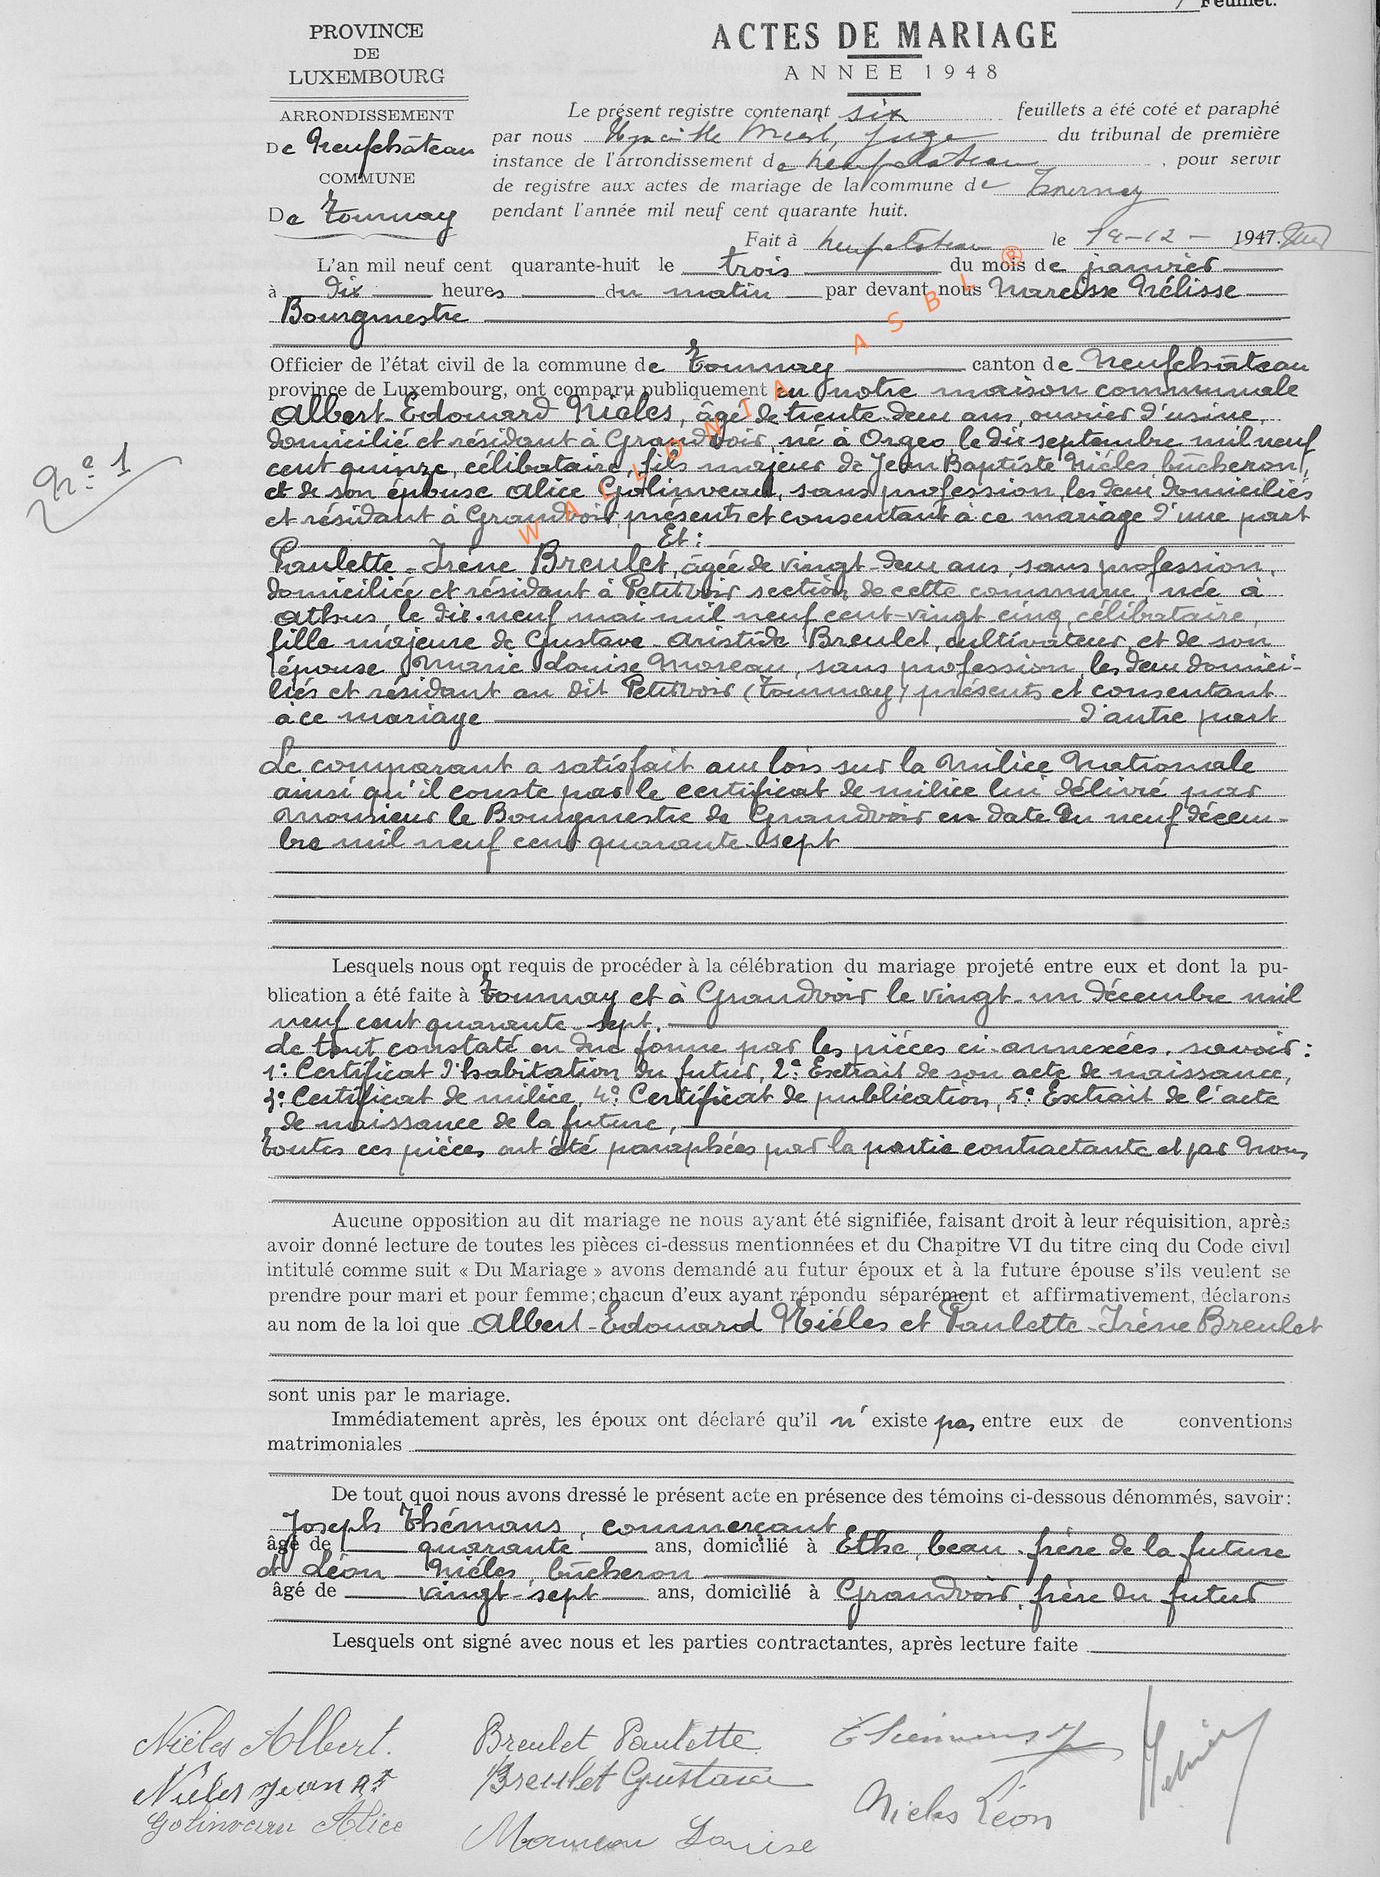 Feuillet.
PROVINCE
DE
LUXEMBOURG
ARRONDISSEMENT
De Neufchâteau
COMMUNE
De Tournay
ACTES DE MARIAGE
ANNEE 1948
Le présent registre contenant six feuillets a été coté et paraphé
par nous juge du tribunal de première
instance de l'arrondissement de Neufchateau, pour servir
de registre aux actes de mariage de la commune de Tournay
pendant l'année mil neuf cent quarante huit.
Fait à Neufchateau le 19-12- 1947.
L'an mil neuf cent quarante-huit le trois du mois de janvier
à dix heures du matin par devant nous Narcisse Nélisse
Bourgmestre
Officier de l'état civil de la commune de Tournay canton de Neufchâteau
province de Luxembourg, ont comparu publiquement en notre maison communale
Albert Edouard Nièles, âgé de trente deux ans, ouvrier d'usine,
domicilié et résidant à Grandvoir, né à Orgeo le dix septembre mil neuf
cent quinze, célibataire, fils majeur de Jean Baptiste Nièles bûcheron,
et de son épouse Alice Golinveau, sans profession, les deux domiciliés
et résidant à Grandvoir présents et consentant à ce mariage d'une part
Et :
Paulette-Irène Breulet, âgée de vingt-deux ans, sans profession,
domiciliée et résidant à Petitvoir section de cette commune, née à
Athus, le dix-neuf mai mil neuf cent-vingt cinq, célibataire,
fille majeure de Gustave-Aristide Breulet, cultivateur, et de son
épouse Marie Louise Moreau, sans profession, les deux domici-
liés et résidant au dit Petitvoir (Tournay) présents et consentant
à ce mariage d'autre part
Le comparant a satisfait aux lois sur la Milice Nationale
ainsi qu'il conste par le certificat de milice lui délivré par
Monsieur le Bourgmestre de Grandvoir en date du neuf décem-
bre mil neuf cent quarante-sept
N° 1
Lesquels nous ont requis de procéder à la célébration du mariage projeté entre eux et dont la pu-
blication a été faite à Tournay et à Grandvoir le vingt-un décembre mil
neuf cent quarante-sept.
de tout constaté en due forme par les pièces ci-annexées, savoir :
1° Certificat d'habitation du futur, 2° Extrait de son acte de naissance,
3° Certificat de milice, 4° Certificat de publication, 5° Extrait de l'acte
de naissance de la future,
toutes ces pièces ont été paraphées par la partie contractante et par Nous
Aucune opposition au dit mariage ne nous ayant été signifiée, faisant droit à leur réquisition, après
avoir donné lecture de toutes les pièces ci-dessus mentionnées et du Chapitre VI du titre cinq du Code civil
intitulé comme suit « Du Mariage » avons demandé au futur époux et à la future épouse s'ils veulent se
prendre pour mari et pour femme; chacun d'eux ayant répondu séparément et affirmativement, déclarons
au nom de la loi que Albert-Edouard Nièles et Paulette-Irène Breulet
sont unis par le mariage.
Immédiatement après, les époux ont déclaré qu'il n'existe pas entre eux de conventions
matrimoniales
De tout quoi nous avons dressé le présent acte en présence des témoins ci-dessous dénommés, savoir :
Joseph Thémans, commerçant,
âgé de quarante ans, domicilié à Ethe, beau-frère de la future
et Léon Nièles, bûcheron
âgé de vingt-sept ans, domicilié à Grandvoir, frère du futur
Lesquels ont signé avec nous et les parties contractantes, après lecture faite
Nieles Albert. Breulet Paulette Themans J
Nieles Jean Bt Breulet Gustave Nieles Léon
Golinveau Alice Moureau Louise
WALLONIA ASBL ®